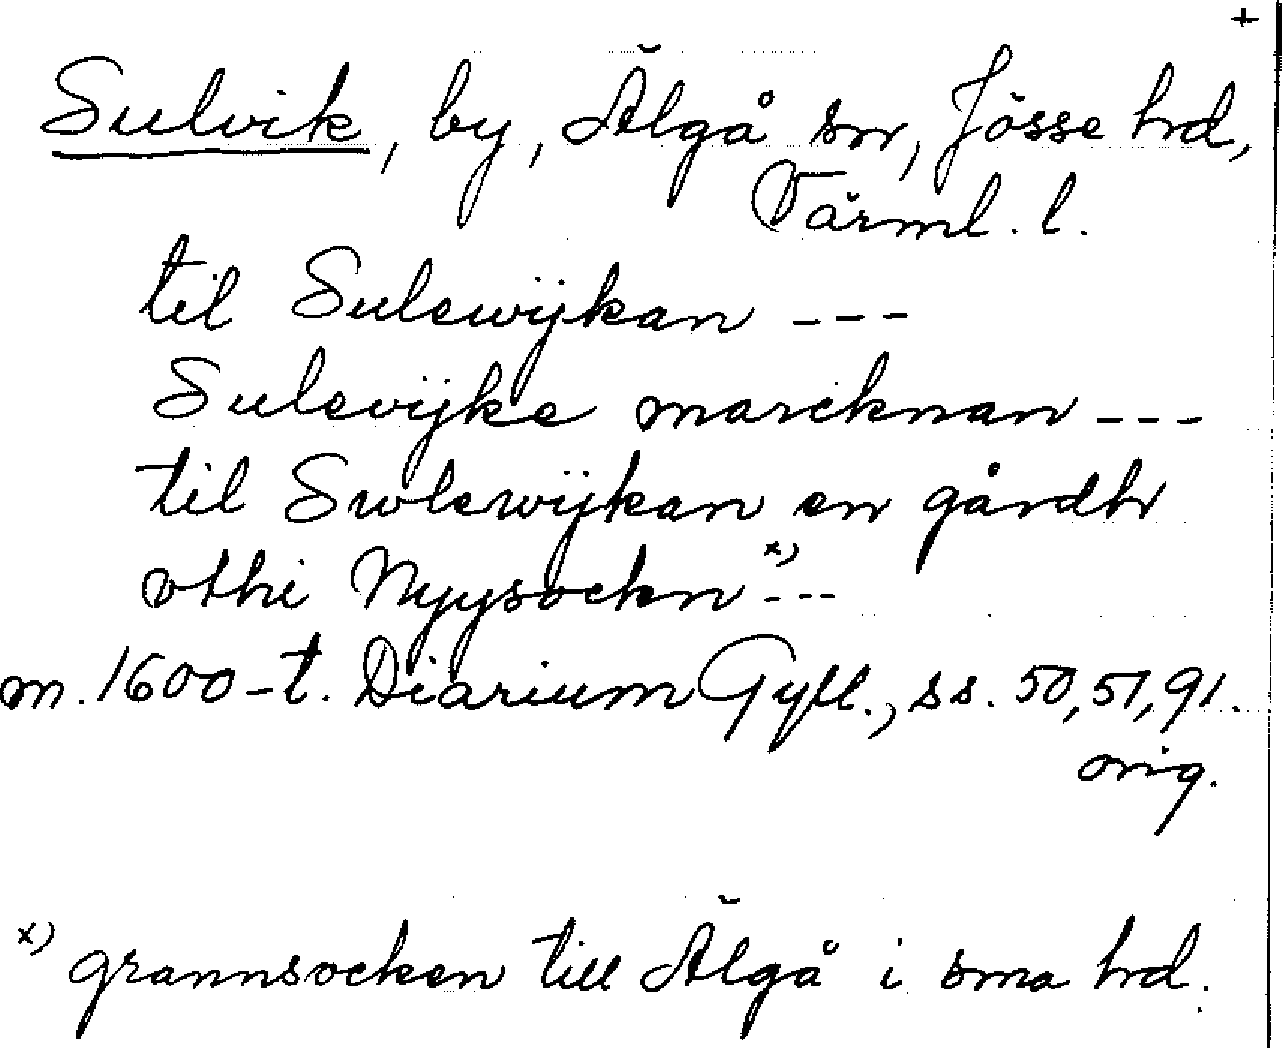 +
Sulvik, by, Älgå sn, Jösse hd,
Värml. l.
til Sulewijkan ---
Sulevijke marcknan ---
til Swlewijkan en gårdh
vthi Nyysockn x) ---
m. 1600-t. Diarium Gyll., ss. 50, 51, 91.
orig.
x) grannsocken till Älgå i sma hd.